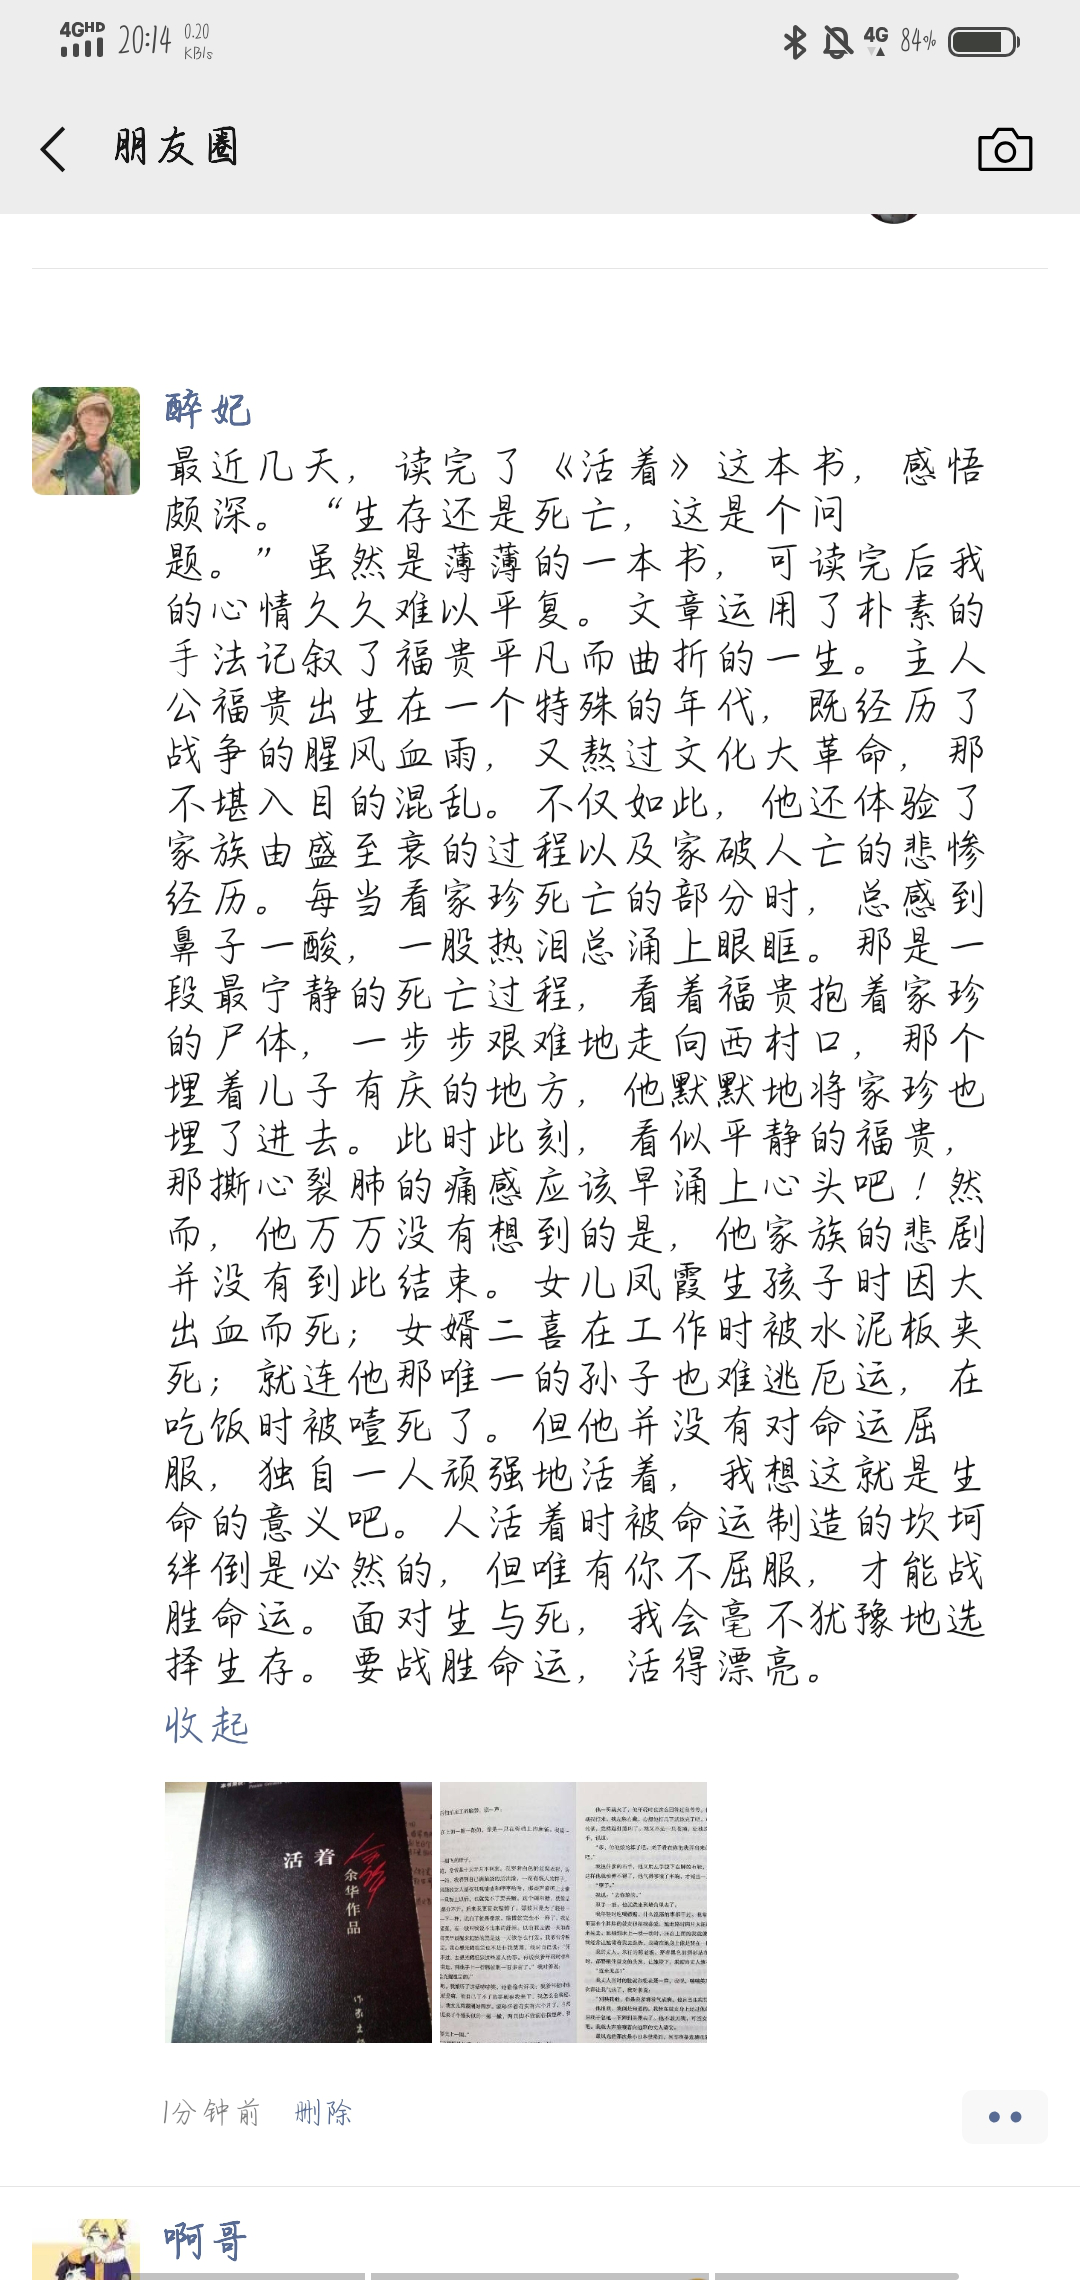 4GHD 20:14 0.20 KB/s 4G 84%
朋友圈
醉妃
最近几天，读完了《活着》这本书，感悟
颇深。“生存还是死亡，这是个问
题。”虽然是薄薄的一本书，可读完后我
的心情久久难以平复。文章运用了朴素的
手法记叙了福贵平凡而曲折的一生。主人
公福贵出生在一个特殊的年代，既经历了
战争的腥风血雨，又熬过文化大革命，那
不堪入目的混乱。不仅如此，他还体验了
家族由盛至衰的过程以及家破人亡的悲惨
经历。每当看家珍死亡的部分时，总感到
鼻子一酸，一股热泪总涌上眼眶。那是一
段最宁静的死亡过程，看着福贵抱着家珍
的尸体，一步步艰难地走向西村口，那个
埋着儿子有庆的地方，他默默地将家珍也
埋了进去。此时此刻，看似平静的福贵，
那撕心裂肺的痛感应该早涌上心头吧！然
而，他万万没有想到的是，他家族的悲剧
并没有到此结束。女儿凤霞生孩子时因大
出血而死；女婿二喜在工作时被水泥板夹
死；就连他那唯一的孙子也难逃厄运，在
吃饭时被噎死了。但他并没有对命运屈
服，独自一人顽强地活着，我想这就是生
命的意义吧。人活着时被命运制造的坎坷
绊倒是必然的，但唯有你不屈服，才能战
胜命运。面对生与死，我会毫不犹豫地选
择生存。要战胜命运，活得漂亮。
收起
活着
余华作品
1分钟前 删除
啊哥